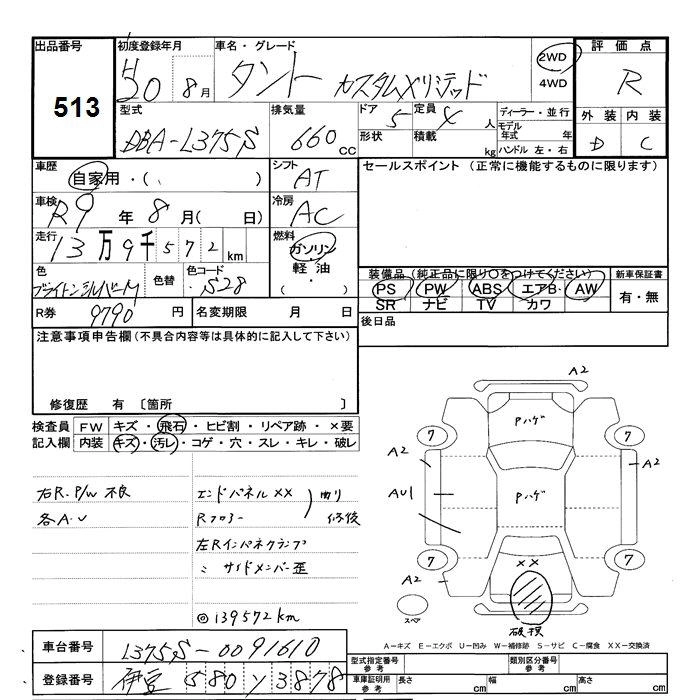 出品番号 513
初度登録年月 H30 8月
車名・グレード タント カスタムXリミテッド
2WD
4WD
評価点 R
外装 内装
D C
型式 DBA-L375S
排気量 660 cc
ドア 5
形状
定員 4 人
積載 kg
ディーラー・並行
モデル年式 年
ハンドル 左・右
車歴 自家用・( )
シフト AT
セールスポイント (正常に機能するものに限ります)
車検 R9 年 8 月( 日)
冷房 AC
走行 13万9千572 km
燃料 ガソリン
軽油
( )
色 ブライトンシルバーM
色替
色コード S28
装備品 (純正品に限り○をつけてください)
PS PW ABS エアB AW
SR ナビ TV カワ
新車保証書
有・無
R券 9790 円
名変期限 月 日
後日品
注意事項申告欄 (不具合内容等は具体的に記入して下さい)
修復歴 有 〔箇所 〕
検査員記入欄
FW キズ・飛石・ヒビ割・リペア跡・×要
内装 キズ・汚レ・コゲ・穴・スレ・キレ・破レ
右R.P/W 不良
各A.U
エンドパネル XX
Rフロアー
修復
左Rインパネクランプ
〃 サイドメンバー歪
◎139572km
A2
Pハゲ
7 7
A2 A2
AU1
Pハゲ
XX
7 7
A2
スペア
破損
A-キズ E-エクボ U-凹み W-補修跡 S-サビ C-腐食 XX-交換済
車台番号 L375S-0091610
登録番号 伊豆 580 ソ 3878
型式指定番号 参考
類別区分番号 参考
車庫証明用 参考
長さ cm
幅 cm
高さ cm